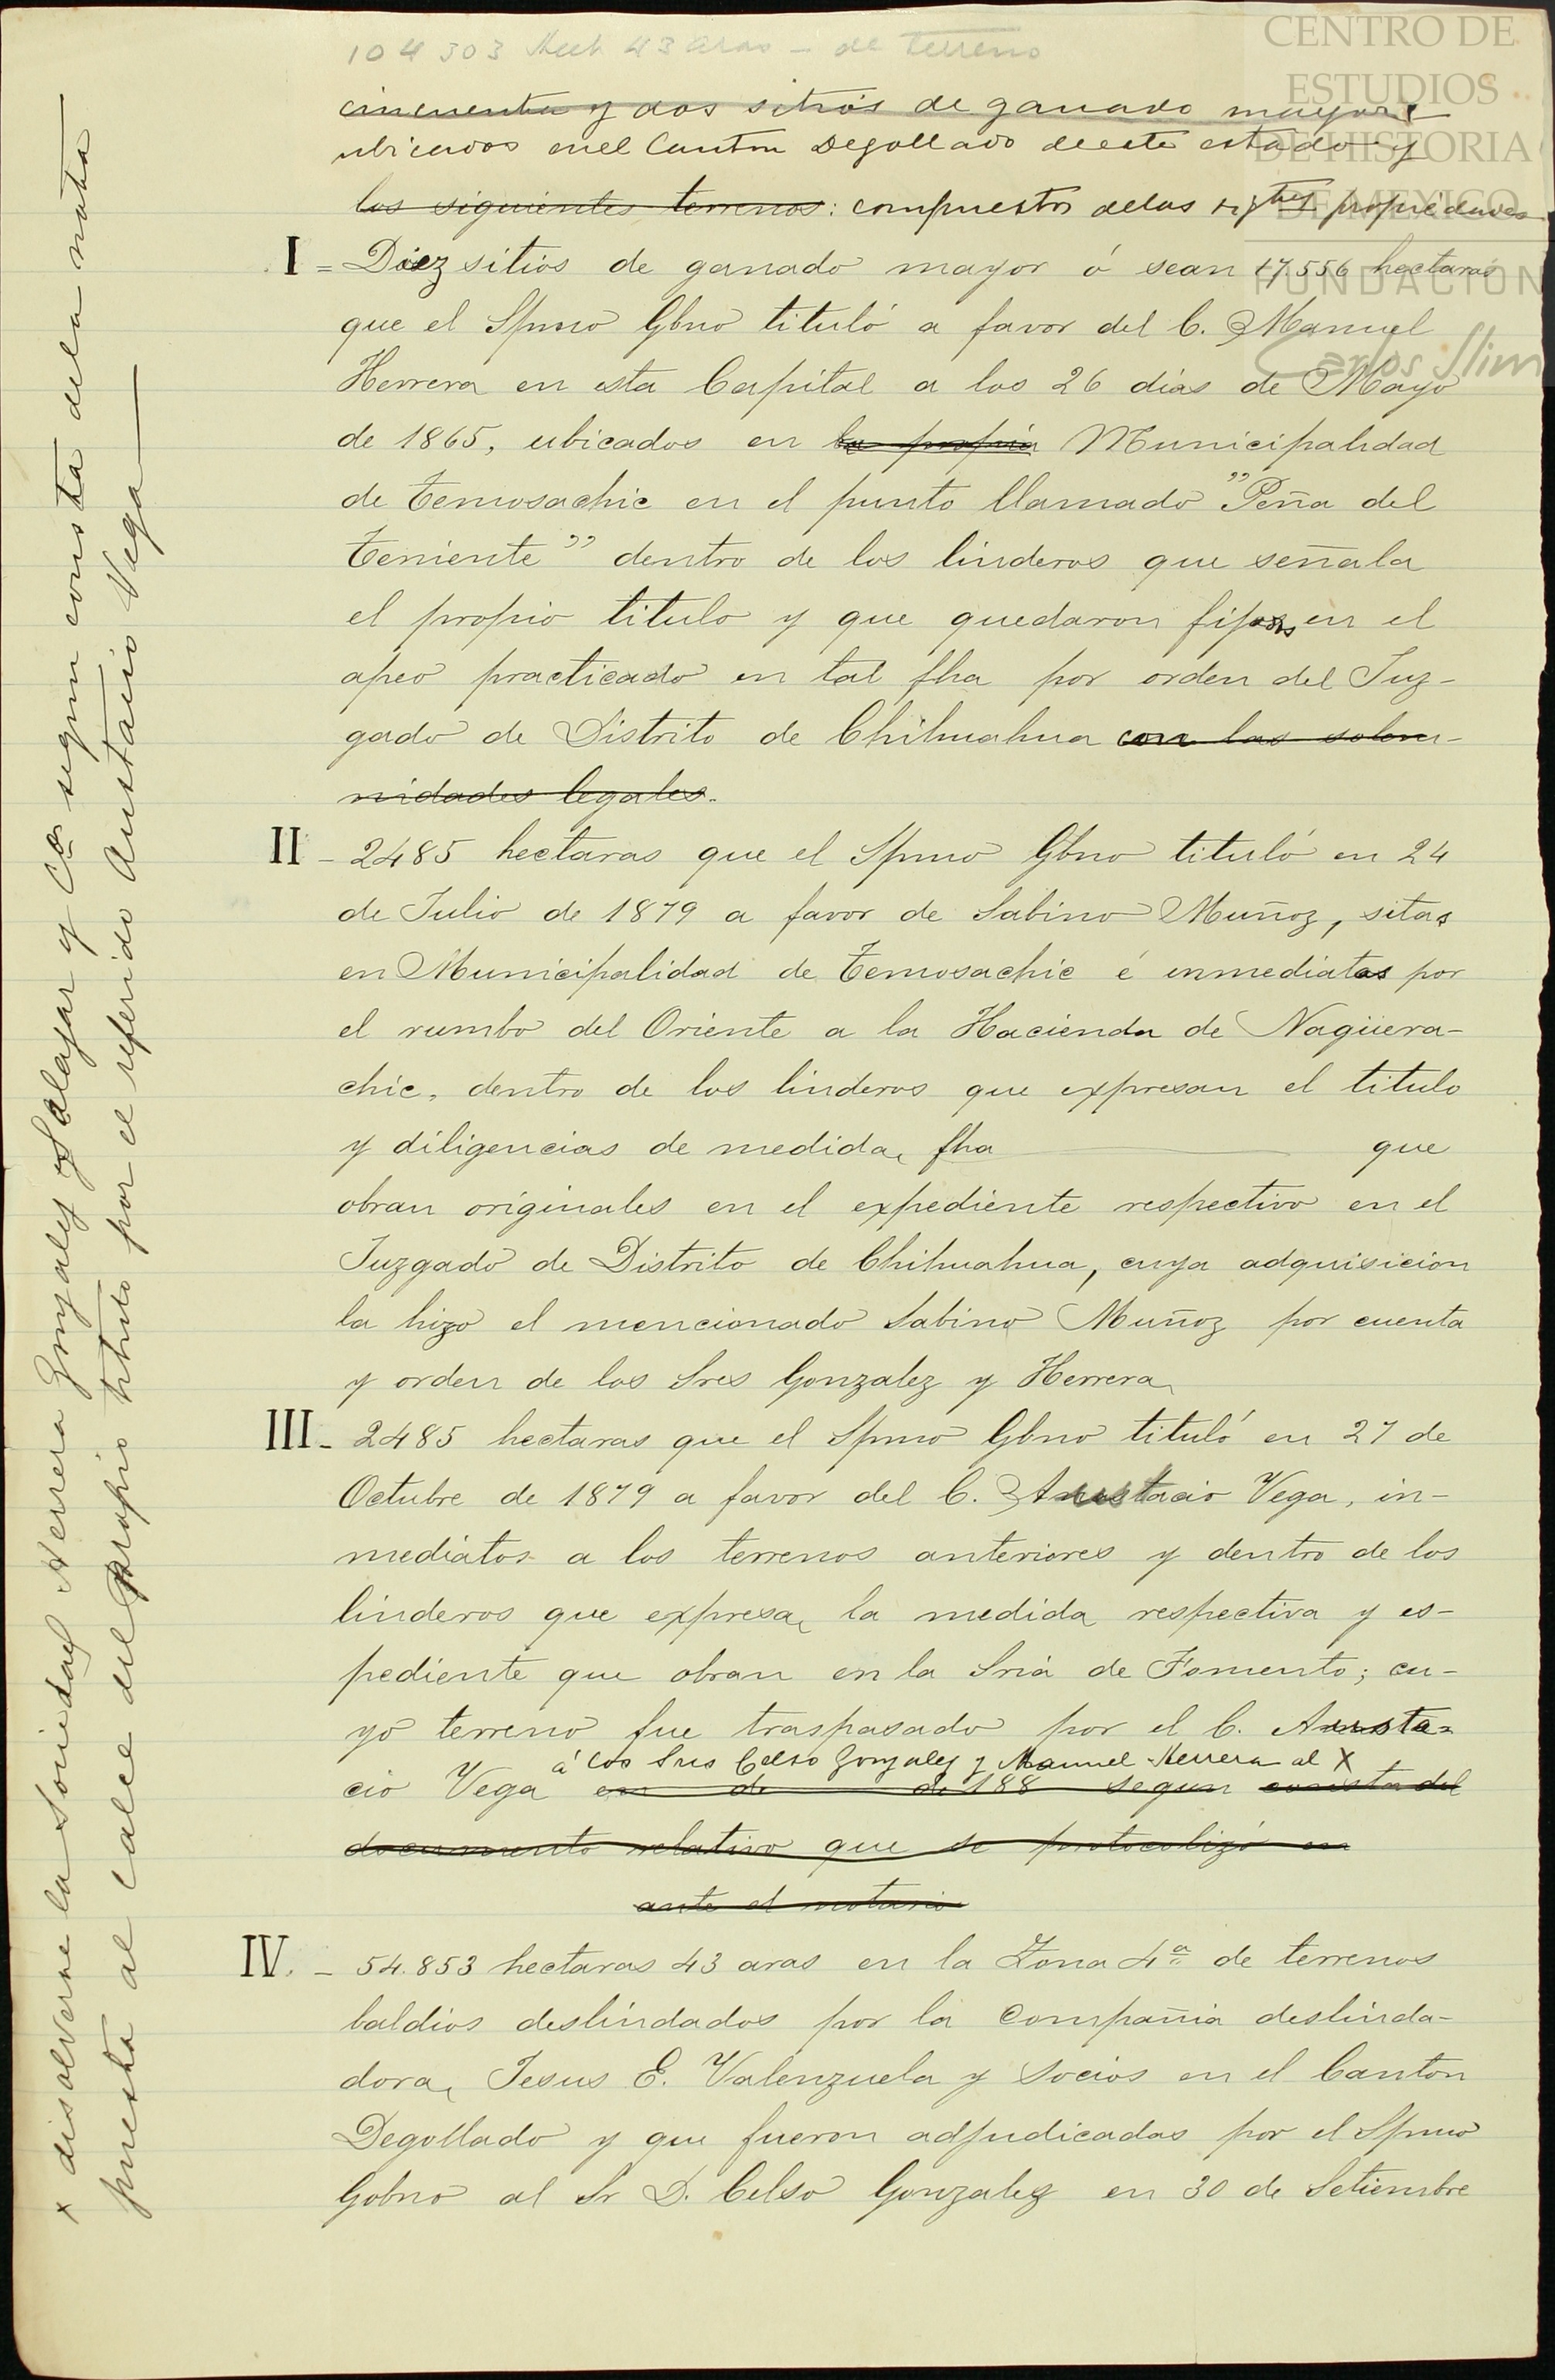 104303 Hect 43 aras - de terreno
CENTRO DE
ESTUDIOS
DE HISTORIA
DE MEXICO
FUNDACIÓN
Carlos Slim
cincuenta y dos sitios de ganado mayor
ubicados en el Canton Degollado de este estado y
los siguientes terrenos: compuestos de las sigtes propiedades
I = Diez sitios de ganado mayor ó sean 17.556 hectaras
que el Spmo Gbno tituló a favor del C. Manuel
Herrera en esta Capital a los 26 dias de Mayo
de 1865, ubicados en la propia Municipalidad
de Temosachic en el punto llamado "Peña del
Teniente" dentro de los linderos que señala
el propio titulo y que quedaron fijos en el
apeo practicado en tal fha por orden del Juz-
gado de Distrito de Chihuahua con las solem-
nidades legales.
II - 2485 hectaras que el Spmo Gbno tituló en 24
de Julio de 1879 a favor de Sabino Muñoz, sitas
en Municipalidad de Temosachic é inmediatas por
el rumbo del Oriente a la Hacienda de Nagüera-
chic, dentro de los linderos que expresan el titulo
y diligencias de medida, fha que
obran originales en el expediente respectivo en el
Juzgado de Distrito de Chihuahua, cuya adquisicion
la hizo el mencionado Sabino Muñoz por cuenta
y orden de los Sres Gonzalez y Herrera
III - 2485 hectaras que el Spmo Gbno tituló en 27 de
Octubre de 1879 a favor del C. Anustacio Vega, in-
mediatos a los terrenos anteriores y dentro de los
linderos que expresa, la medida respectiva y es-
pediente que obran en la Sria de Fomento; cu-
yo terreno fue traspasado por el C. Anusta-
á los Sres Celso Gonzalez y Manuel Herrera al X
cio Vega en de de 188 segun consta del
documento relativo que se protocolizó en
ante el notario
IV. - 54.853 hectaras 43 aras en la Zona 4ª de terrenos
baldios deslindados por la Compañia deslinda-
dora, Jesus E. Valenzuela y Socios en el Canton
Degollado y que fueron adjudicadas por el Spmo
Gobno al Sr D. Celso Gonzalez en 30 de Setiembre
x disolverse la Sociedad Herrera Gonzalez y Salazar y Ca segun consta de la nota
puesta al calce del propio titulo por el referido Anustacio Vega